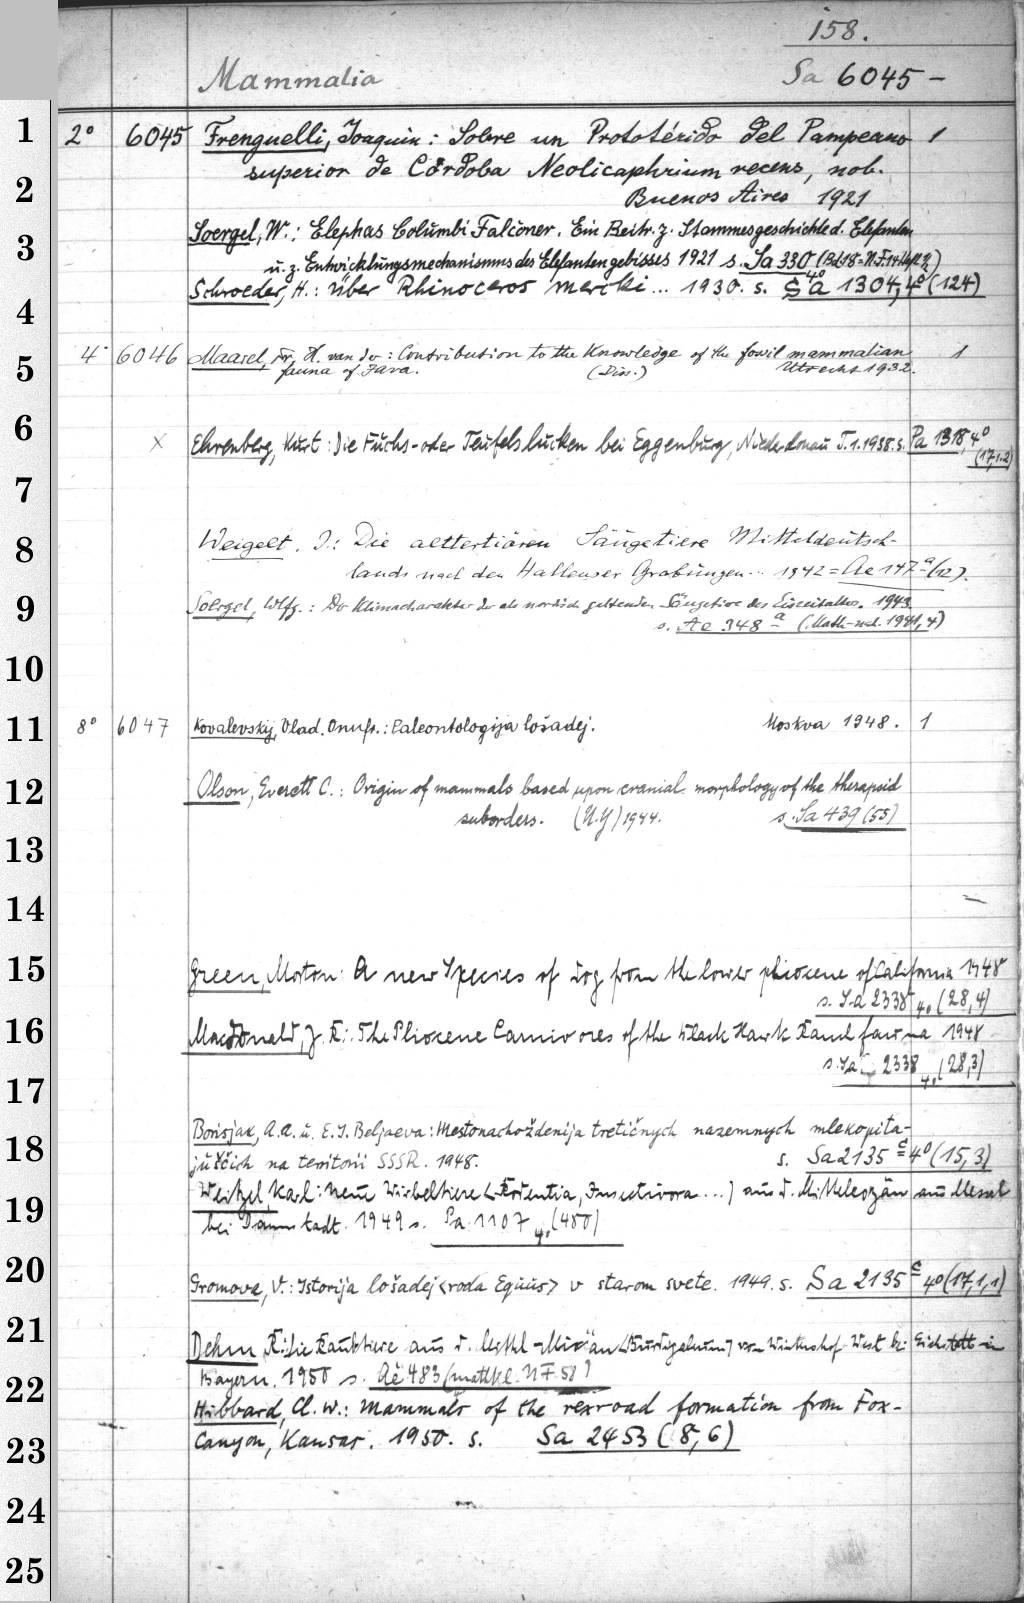 158.
Mammalia Sa 6045 -
1 2° 6045 Frenguelli, Joaquin: Sobre un Prototérido del Pampeano 1
superior de Córdoba Neolicaphrium recens, nob.
2 Buenos Aires 1921
3 Soergel, W.: Elephas Columbi Falconer. Ein Beitr. z. Stammesgeschichte d. Elefanten
u. z. Entwicklungsmechanismus des Elefantengebisses 1921 s. Sa 330 (Bd 18 = N.F. 14
4 Schroeder, H.: Über Rhinoceros mercki ... 1930. s. Sa 1304, 4° (124)
5 4° 6046 Maarel, Fr. H. van der: Contribution to the Knowledge of the fossil mammalian 1
fauna of Java. (Diss.) Utrecht 1932.
6 x Ehrenberg, Kurt: Die Fuchs- oder Teufelslucken bei Eggenburg, Niederdonau T. 1. 1938. s. Pa 1318, 4°
(17,1.2)
7
8 Weigelt, J.: Die alttertiären Säugetiere Mitteldeutsch-
lands nach den Hallenser Grabungen... 1942 = Ae 147 a (12).
9 Soergel, Wlfg.: Der Klimacharakter der als nordisch geltenden Säugetiere des Eiszeitalters. 1943
s. Ae 348 a (Math.-nat. 1941, 4)
10
11 8° 6047 Kovalevskij, Vlad. Onufr.: Paleontologija lošadej. Moskva 1948. 1
12 Olson, Everett C.: Origin of mammals based upon cranial morphology of the therapsid
suborders. (N.Y) 1944. s. Sa 439 (55)
13
14
15 Green, Morton: A new Species of Dog from the lower pliocene of California 1948
s. Sa 2338 4° (28,4)
16 MacDonald, J. R.: The Pliocene Carnivores of the Black Hawk Ranch fauna 1948
s. Sa 2338 4° (28,3)
17
18 Borisjak, A. A. u. E. I. Beljaeva: Mestonachoždenija tretičnych nazemnych mlekopita-
juščich na territorii SSSR. 1948. s. Sa 2135 c 4° (15,3)
19 Weitzel, Karl: Neue Wirbeltiere (Rodentia, Insectivora ...) aus d. Mitteleozän aus Messel
bei Darmstadt. 1949 s. Pa 1107 4° (480)
20 Gromova, V.: Istorija lošadej <roda Equus> v starom svete. 1949. s. Sa 2135 c 4° (17,1,1)
21 Dehm, R.: Die Raubtiere aus d. Mittel-Miozän (Burdigalium) von Wintershof-West bei Eichstätt in
22 Bayern. 1950 s. Ae 483 (math kl. N F. 58)
Hibbard, Cl. W.: Mammals of the rexroad formation from Fox-
23 Canyon, Kansas. 1950. s. Sa 2453 (8,6)
24
25